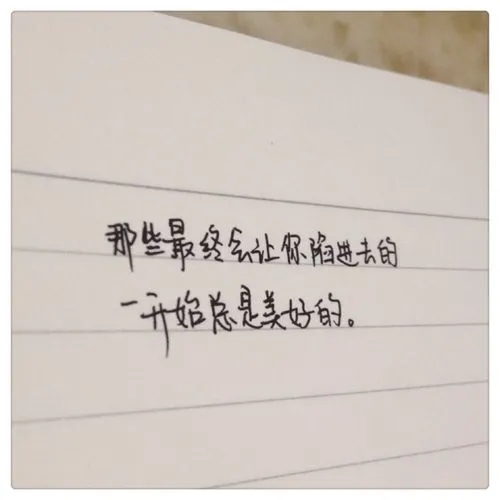 那些最终会让你陷进去的
一开始总是美好的。